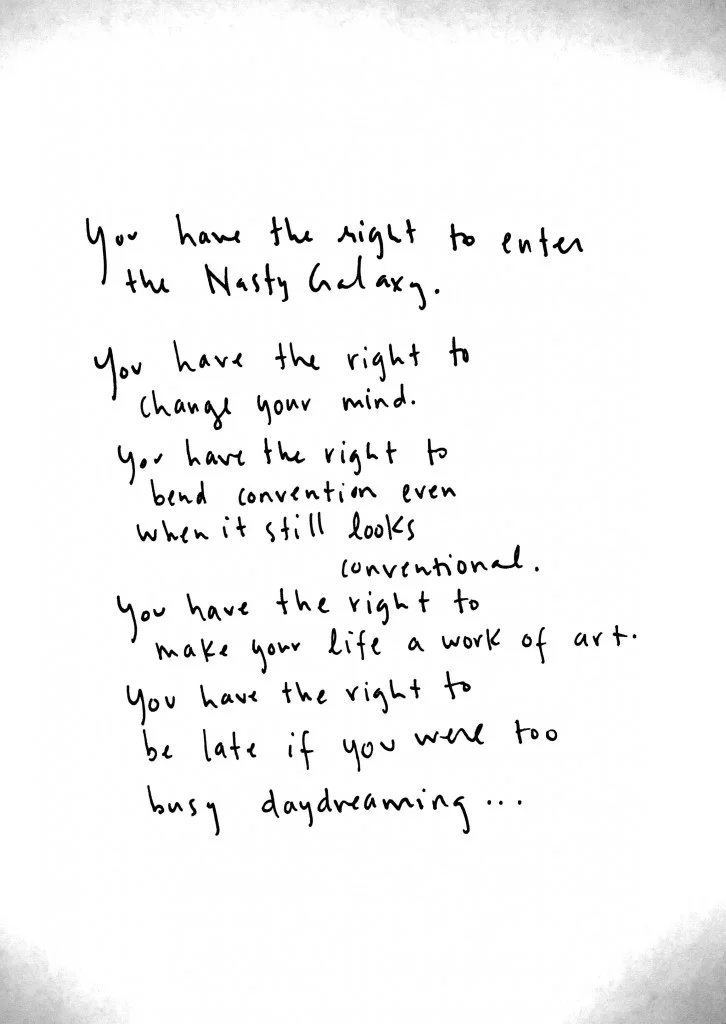 You have the right to enter
the Nasty Galaxy.
You have the right to
change your mind.
You have the right to
bend convention even
when it still looks
conventional.
You have the right to
make your life a work of art.
You have the right to
be late if you were too
busy daydreaming...